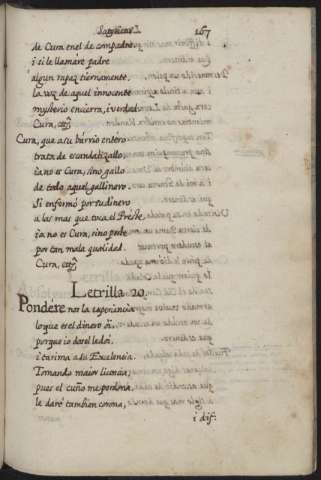 Satyricas. 167
de Cura en el de compadre,
i si le llamare padre
algun rapaz tiernamente,
la voz de aquel innocente
mysterio encierra, i verdad.
Cura, etc.
Cura, que a su barrio entero
trata de escandalizallo,
ia no es Cura, sino gallo
de todo aquel gallinero.
Si enfermó por su dinero
a las mas que toca el Preste
ia no es Cura, sino peste
por tan mala qualidad.
Cura, etc.
Letrilla 20.
Pondere nos la experiencia
lo que es el dinero oi,
porque io dare le doi
i tarima a su Excelencia.
Tomando maior licencia,
pues el cuño me perdona,
le daré tambien corona,
i dis